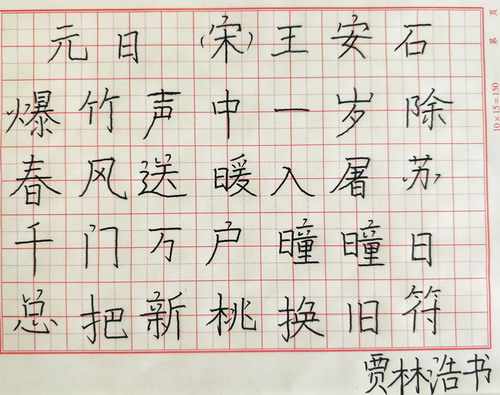 元日 (宋) 王安石
爆竹声中一岁除
春风送暖入屠苏
千门万户曈曈日
总把新桃换旧符
贾林浩书
第 页
10×15=150